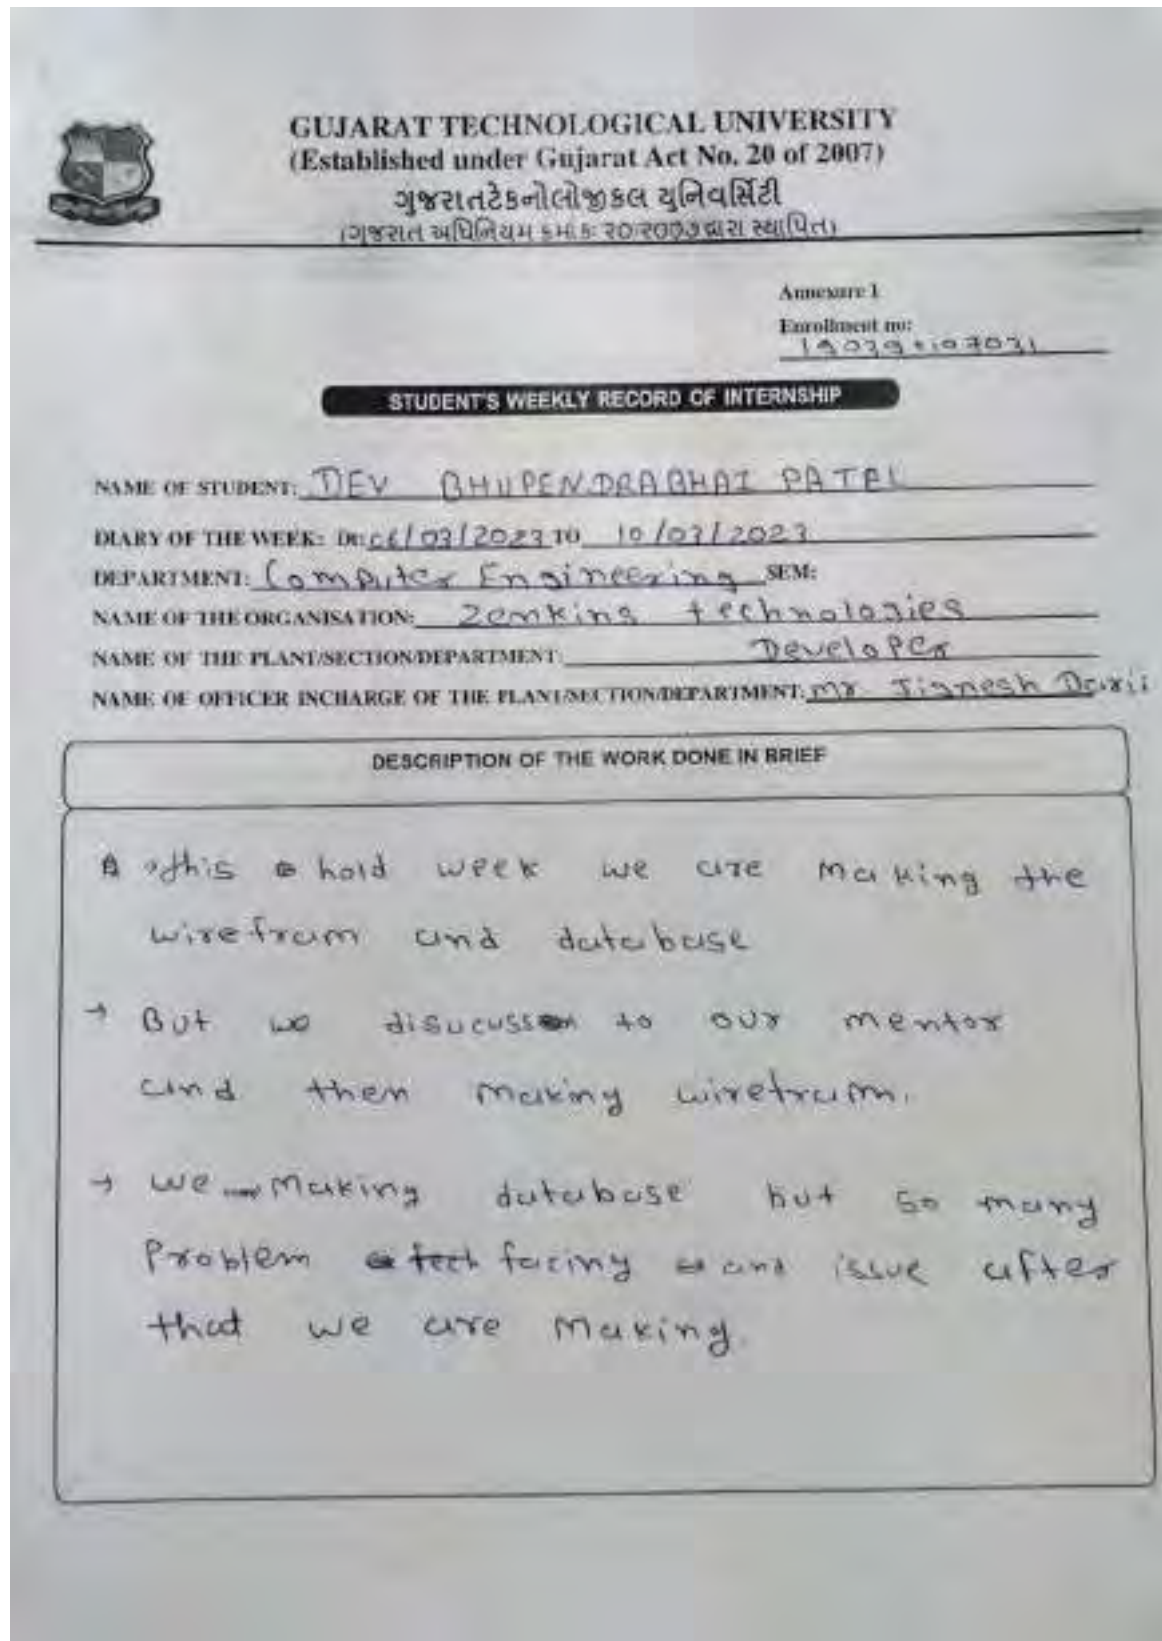 GUJARAT TECHNOLOGICAL UNIVERSITY
(Established under Gujarat Act No. 20 of 2007)
ગુજરાતટેકનોલોજીકલ યુનિવર્સિટી
(ગુજરાત અધિનિયમ ક્રમાંક: ૨૦/૨૦૦૭ દ્વારા સ્થાપિત)
Annexure 1
Enrollment no:
STUDENT'S WEEKLY RECORD OF INTERNSHIP
NAME OF STUDENT: DEV BHUPENDRABHAI PATEL
DIARY OF THE WEEK: Dt: 06/03/2023 TO 10/03/2023
DEPARTMENT: Computer Engineering SEM:
NAME OF THE ORGANISATION: Zemking technologies
NAME OF THE PLANT/SECTION/DEPARTMENT: Developer
NAME OF OFFICER INCHARGE OF THE PLANT/SECTION/DEPARTMENT: Mr Jignesh
DESCRIPTION OF THE WORK DONE IN BRIEF
this hold week we are Making the
wirefram and database
→ But we disucuss to our mentor
and then making wirefram.
→ We making database but so many
Problem facing and issue after
that we are making.